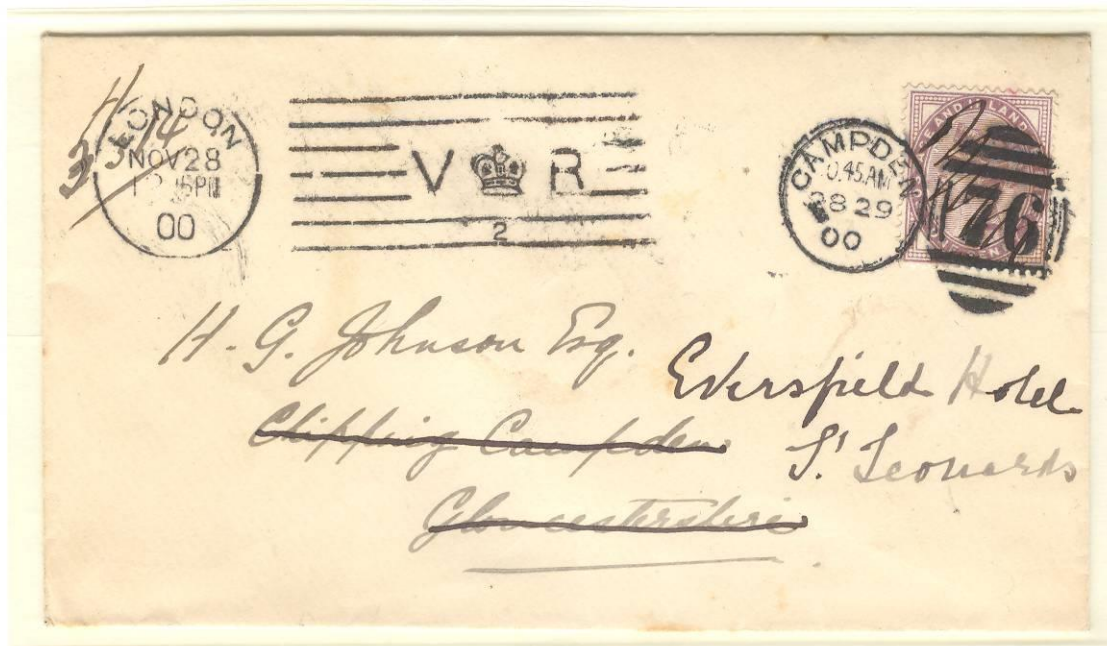 LONDON
NOV 28
00
V R
2
CAMPDEN
0.45 AM
28 29
00
E AND I LAND
76
H. G. Johnson Esq.
Chipping Campden
Gloucestershire
Eversfield Hotel
St Leonards